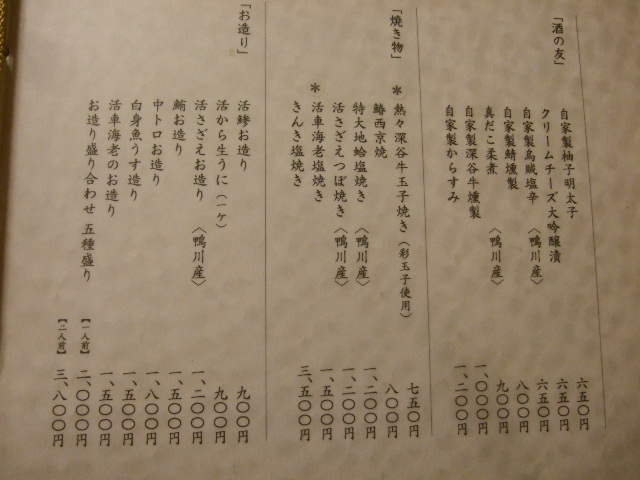 「酒の友」
自家製柚子明太子 六五〇円
クリームチーズ大吟醸漬 六五〇円
自家製烏賊塩辛〈鴨川産〉 六五〇円
自家製鯖燻製 八〇〇円
真だこ柔煮〈鴨川産〉 九〇〇円
自家製深谷牛燻製 一、〇〇〇円
自家製からすみ 一、二〇〇円
「焼き物」
*熱々深谷牛玉子焼き(彩玉子使用) 七五〇円
鰆西京焼 八〇〇円
特大地蛤塩焼き〈鴨川産〉 一、二〇〇円
活さざえつぼ焼き〈鴨川産〉 一、二〇〇円
*活車海老塩焼き 一、五〇〇円
きんき塩焼き 三、五〇〇円
「お造り」
活鯵お造り 九〇〇円
活から生うに(一ケ) 九〇〇円
活さざえお造り〈鴨川産〉 一、二〇〇円
鮪お造り 一、五〇〇円
中トロお造り 一、八〇〇円
白身魚うす造り 一、五〇〇円
活車海老のお造り 一、五〇〇円
お造り盛り合わせ 五種盛り【一人前】 二、〇〇〇円
【二人前】 三、八〇〇円